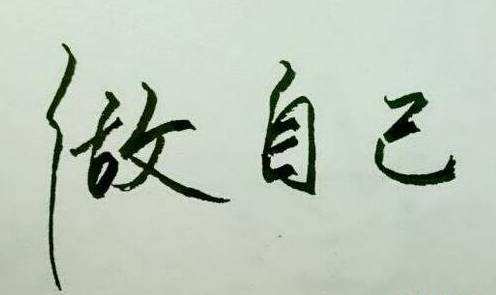 做自己